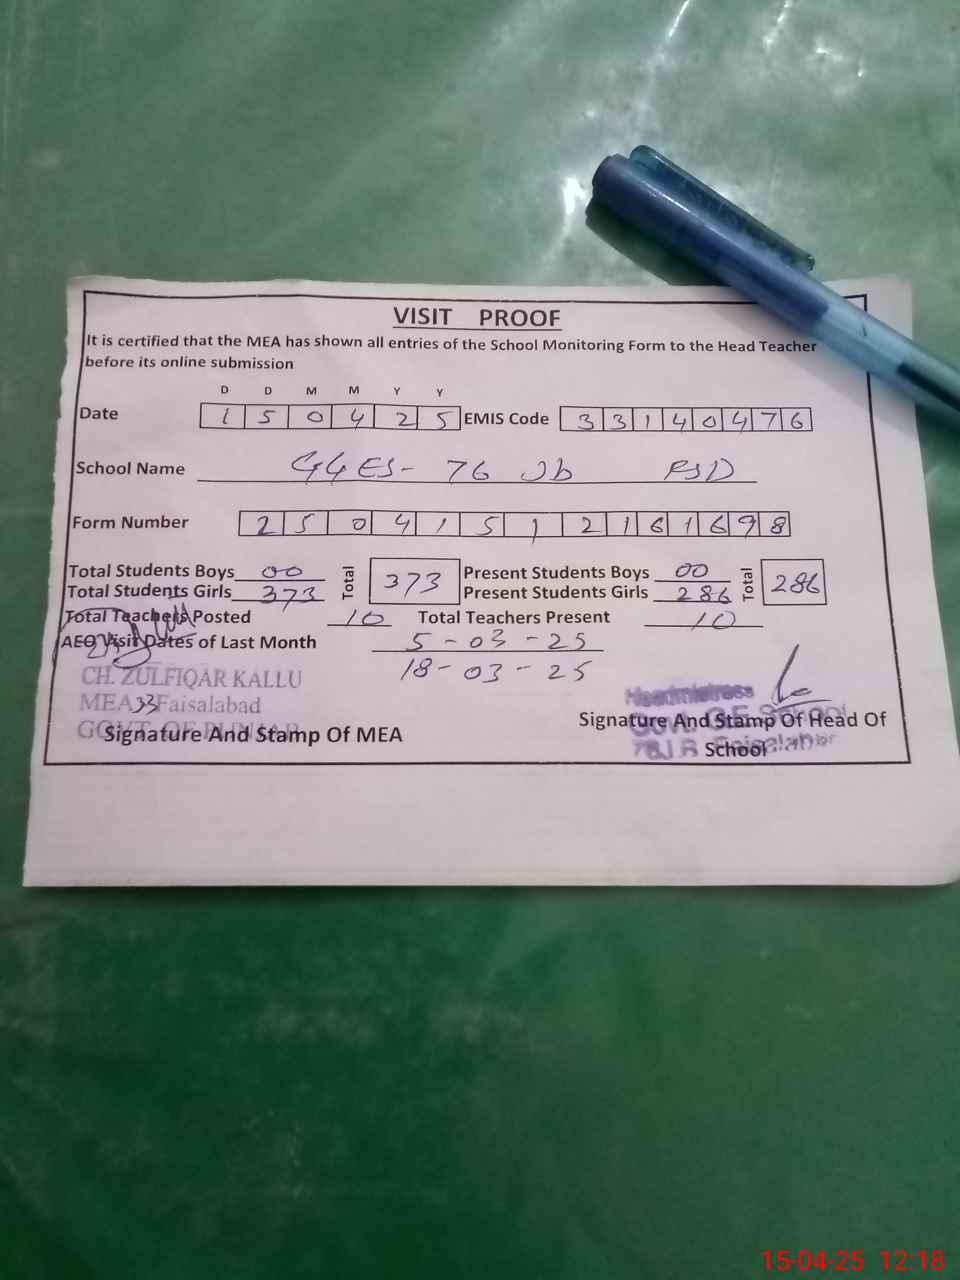 VISIT PROOF
It is certified that the MEA has shown all entries of the School Monitoring Form to the Head Teacher
before its online submission
D D M M Y Y
Date 1 5 0 4 2 5 EMIS Code 3 3 1 4 0 4 7 6
School Name GGES- 76 Jb FSD
Form Number 2 5 0 4 1 5 1 2 1 6 1 6 9 8
Total Students Boys 00 Total 373 Present Students Boys 00 Total 286
Total Students Girls 373 Present Students Girls 286
Total Teachers Posted 10 Total Teachers Present 10
AEO Visit Dates of Last Month 5-03-25
18-03-25
CH. ZULFIQAR KALLU
MEA 33 Faisalabad
GOVT. OF PUNJAB
Signature And Stamp Of MEA
Headmistress
Govt. G.E School
Signature And Stamp Of Head Of
School
Faisalabad
15-04-25 12:18